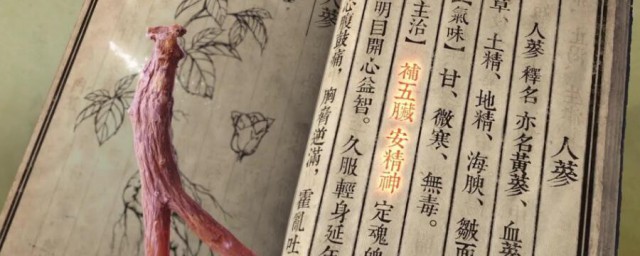 人蔘
人蔘 釋名 亦名黃蔘、血蔘
草、土精、地精、海腴、皺面
氣味】甘、微寒、無毒。
主治】補五臟 安精神 定魂魄
明目開心益智。久服輕身延年
心腹鼓痛，胸脅逆滿，霍亂吐
人蔘